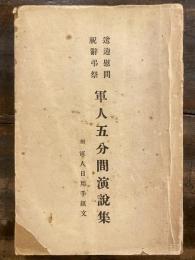 送迎慰問
祝辞弔祭
軍人五分間演説集
附 軍人日用手紙文